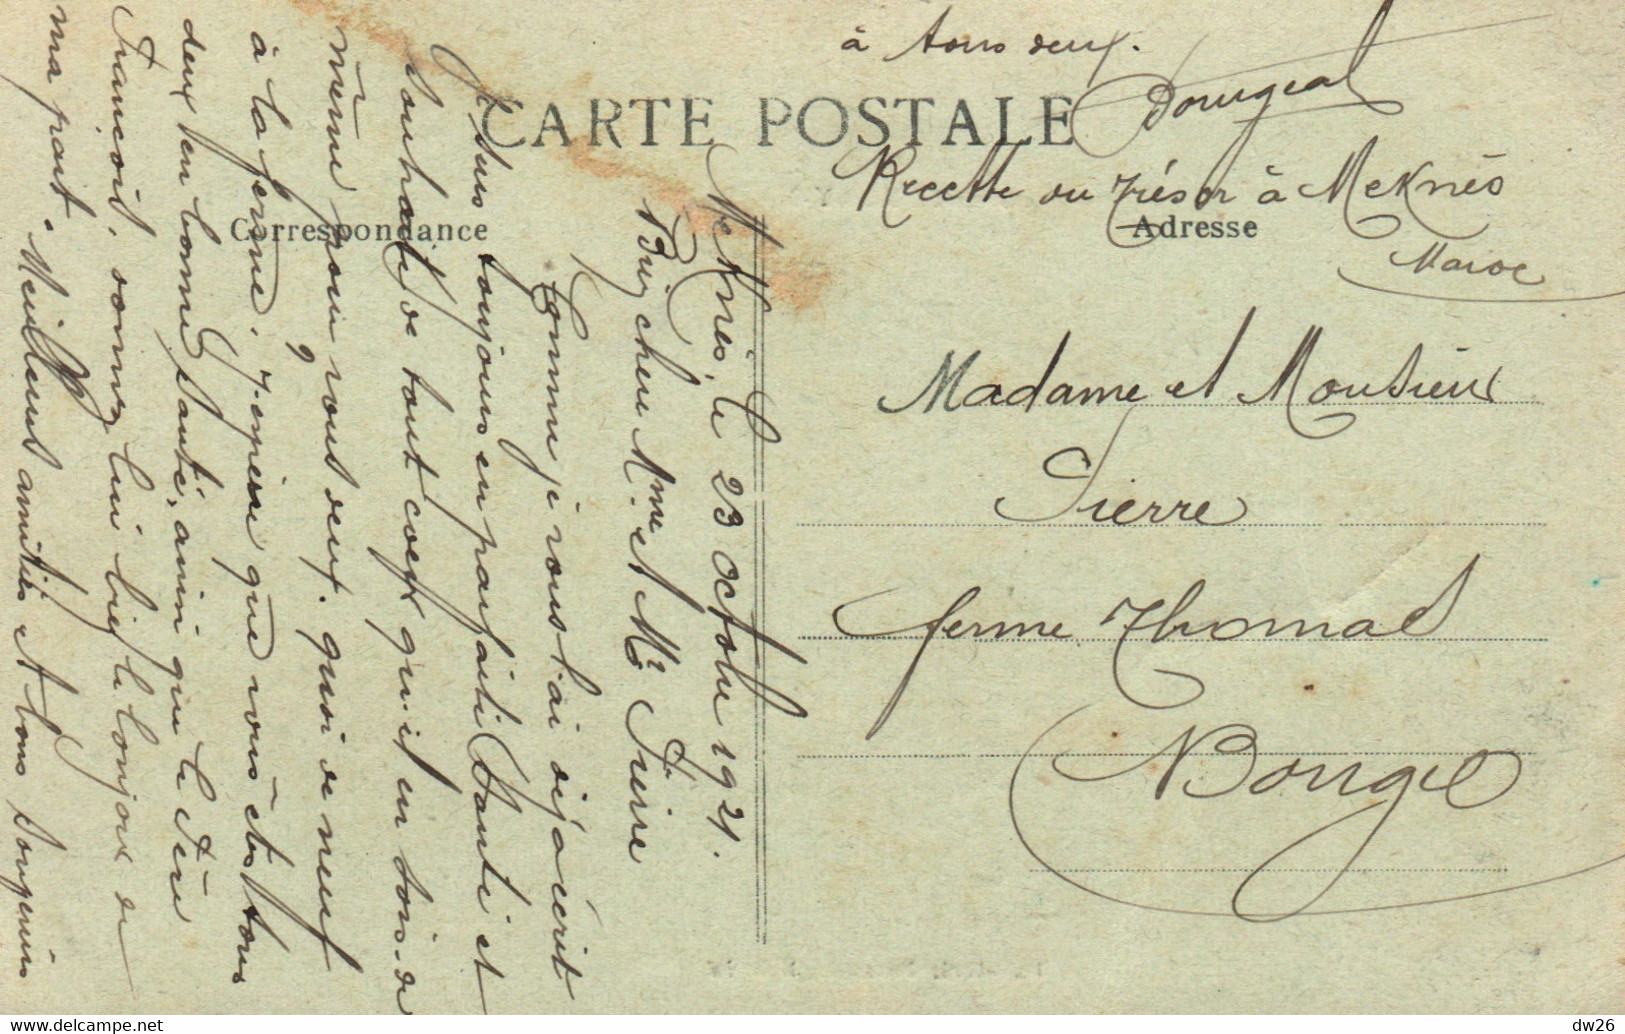 CARTE POSTALE
Correspondance
Adresse
Meknès, le 23 octobre 1921.
Bien chers Mme et Mr Pierre
Comme je vous l'ai déjà écrit
je suis toujours en parfaite santé et
souhaite de tout coeur qu'il en soit de
même pour vous deux. quoi de neuf
à la ferme ? J'espère que vous êtes tous
deux en bonne santé, ainsi que le Père
François, donnez lui bien le bonjour de
ma part. Meilleures amitiés et bons souvenirs
à tous deux.
Dougeal
Recette du Trésor à Meknès
Maroc
Madame et Monsieur
Pierre
ferme Thomas
Bougie
dw26